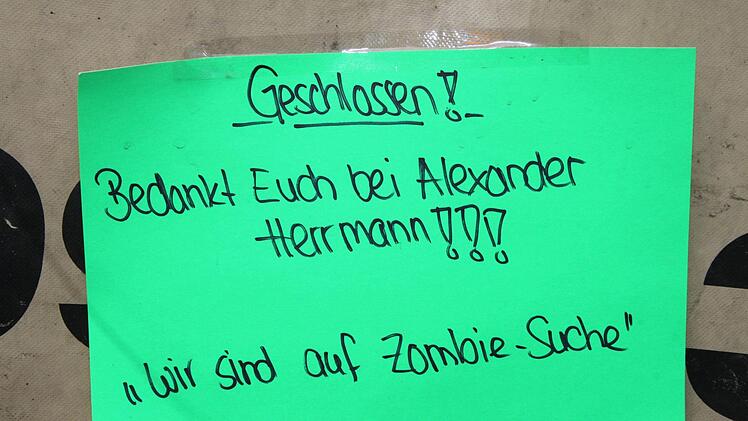 Geschlossen!
Bedankt Euch bei Alexander
Herrmann!!!
„Wir sind auf Zombie-Suche"